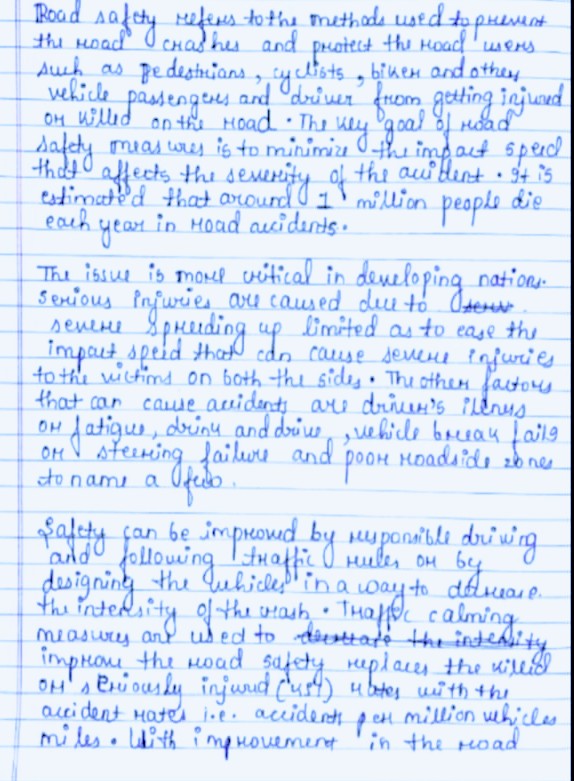 Road safety refers to the methods used to prevent
the road crashes and protect the road users
such as pedestrians, cyclists, biker and other
vehicle passengers and driver from getting injured
or killed on the road. The key goal of road
safety measures is to minimize the impact speed
that affects the severity of the accident. It is
estimated that around 1 million people die
each year in road accidents.
The issue is more critical in developing nations.
Serious injuries are caused due to
severe spreeding up limited as to ease the
impact speed that can cause severe injuries
to the victims on both the sides. The other factors
that can cause accidents are driver's illness
or fatigue, drink and drive, vehicle break fails
or steering failure and poor roadside zones
to name a few.
Safety can be improved by responsible driving
and following traffic rules or by
designing the vehicles in a way to decrease
the intensity of the crash. Traffic calming
measures are used to decrease the intensity
improve the road safety replaces the killed
or seriously injured (KSI) rates with the
accident rates i.e. accidents per million vehicles
miles. With improvement in the road